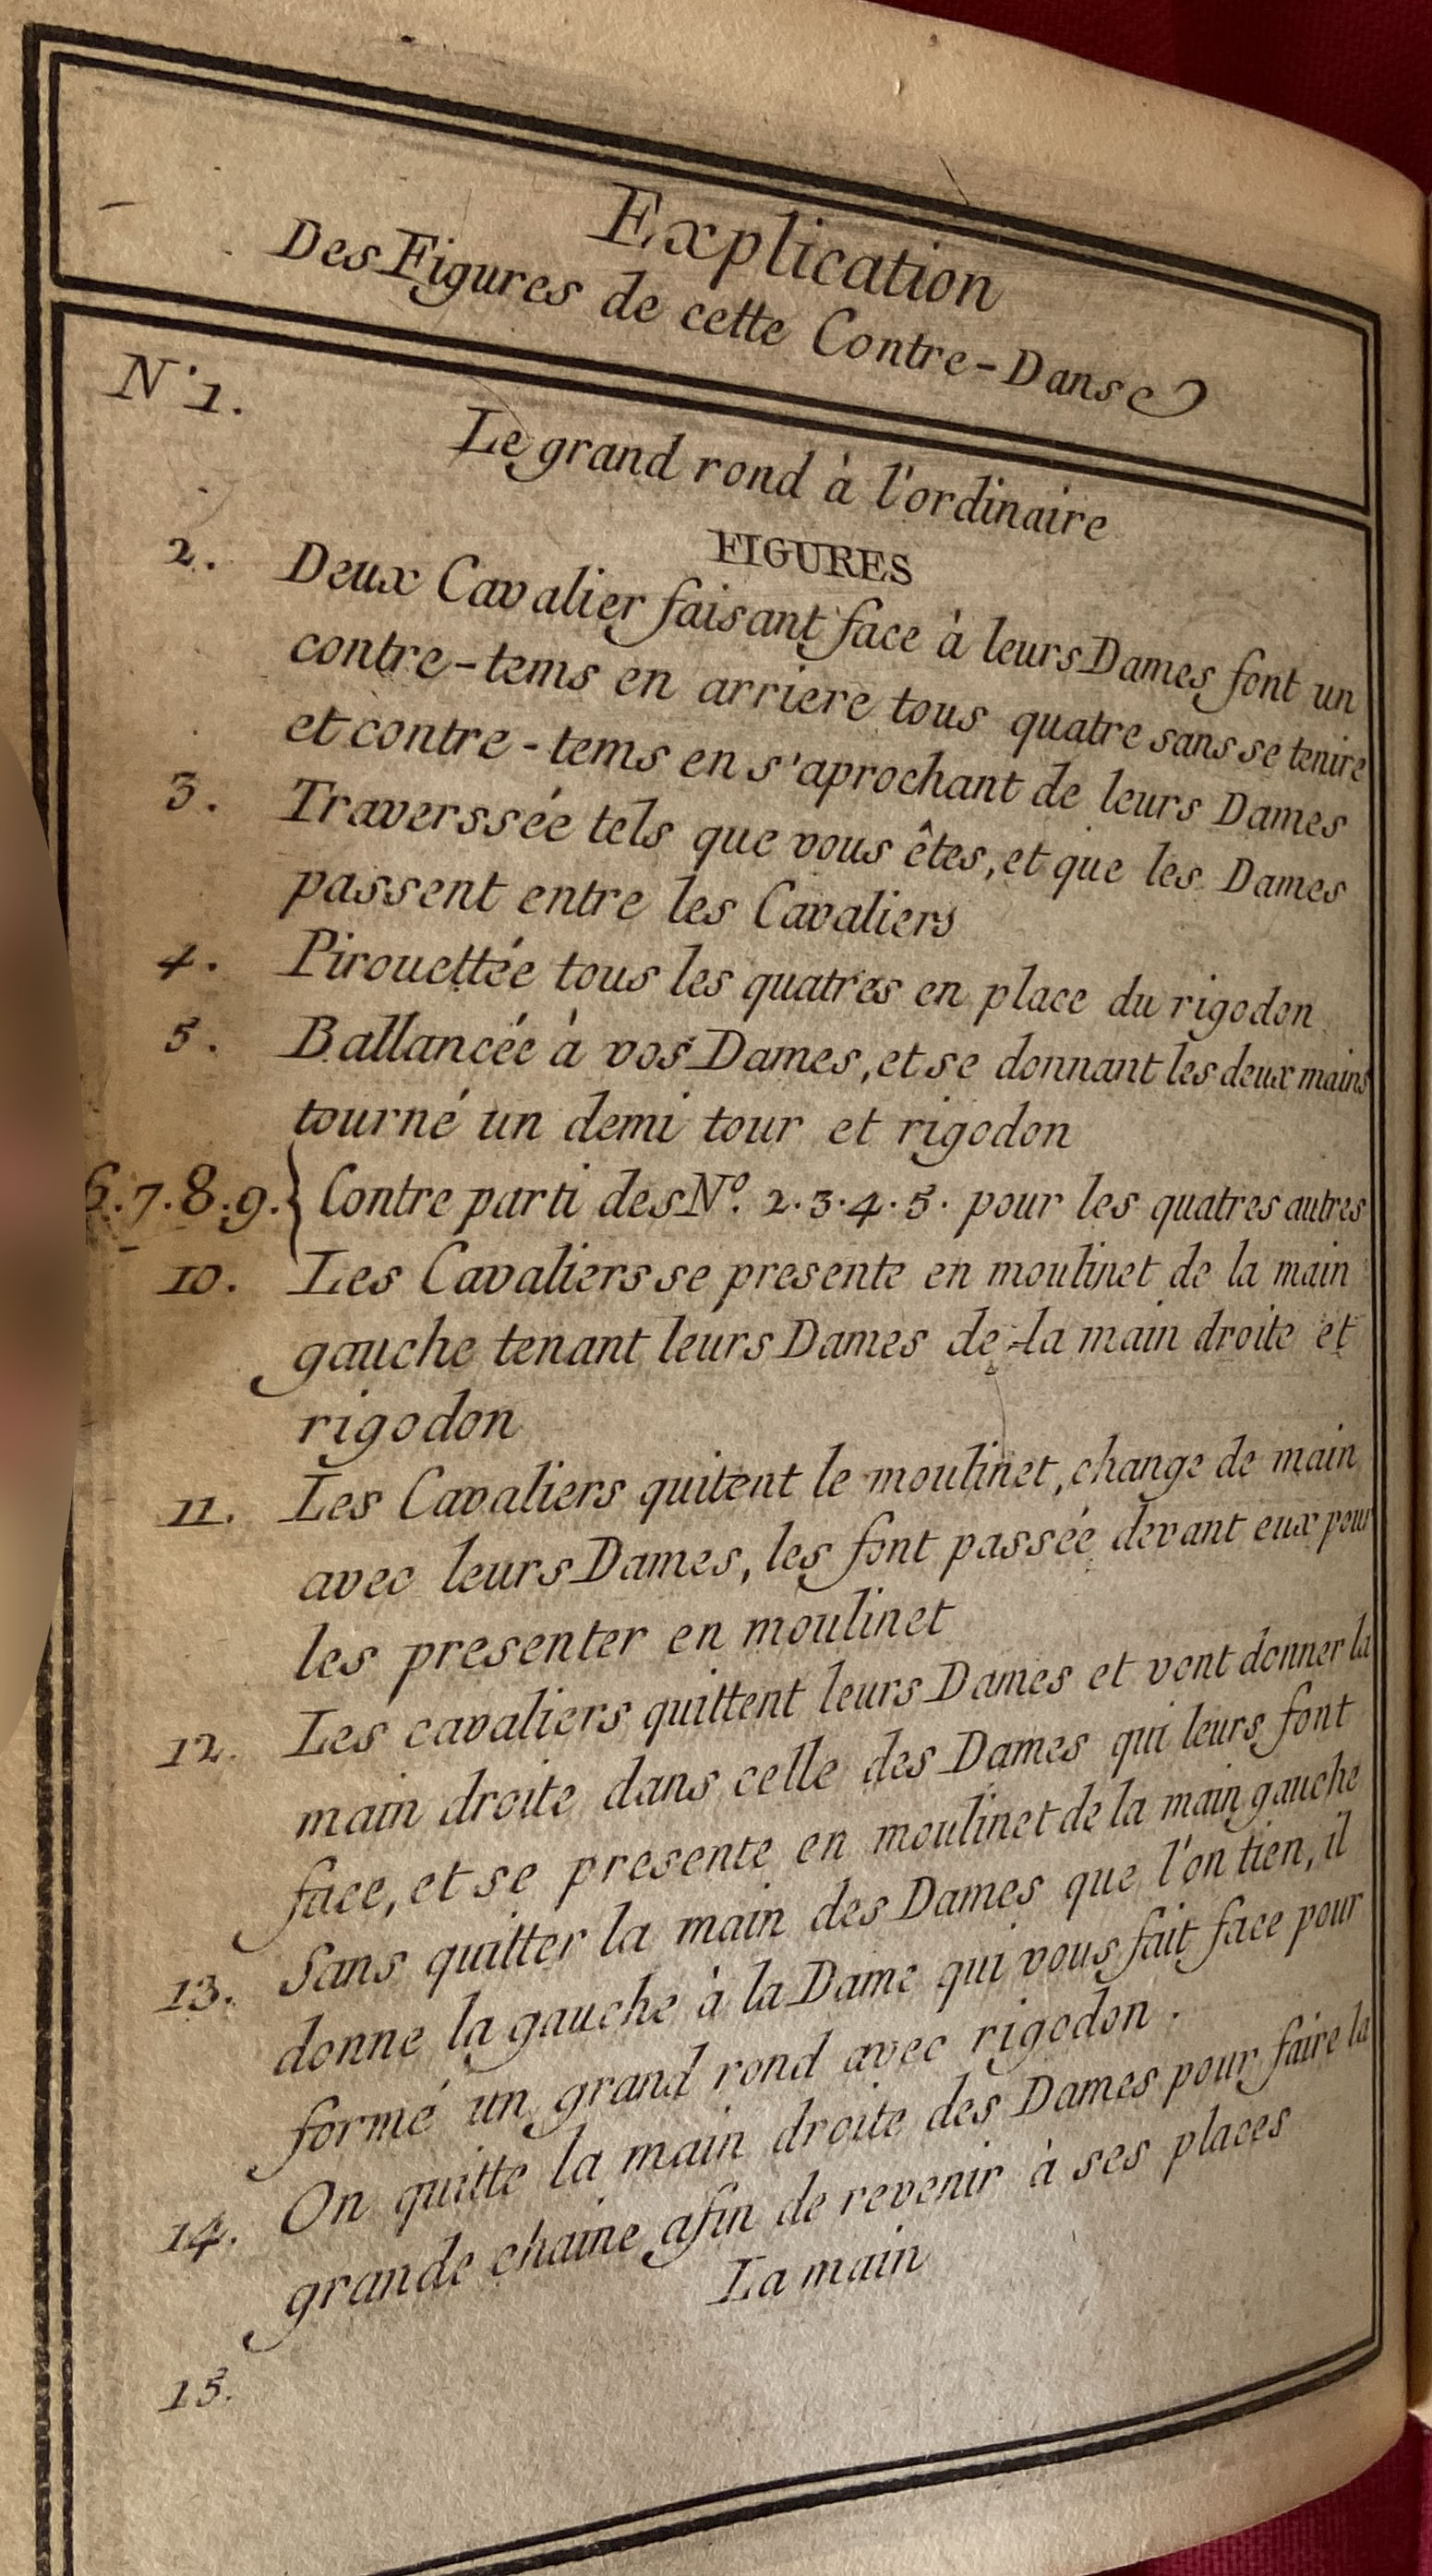 Explication
Des Figures de cette Contre-Danse
N° 1. Le grand rond à l'ordinaire
FIGURES
2. Deux Cavalier faisant face à leurs Dames font un
contre-tems en arriere tous quatre sans se tenire
et contre-tems en s'aprochant de leurs Dames
3. Traverssée tels que vous êtes, et que les Dames
passent entre les Cavaliers
4. Pirouettée tous les quatres en place du rigodon
5. Ballancée à vos Dames, et se donnant les deux mains
tourné un demi tour et rigodon
6.7.8.9.} Contre parti des N° 2.3.4.5. pour les quatres autres
10. Les Cavaliers se presente en moulinet de la main
gauche tenant leurs Dames de la main droite et
rigodon
11. Les Cavaliers quitent le moulinet, change de main
avec leurs Dames, les font passée devant eux pour
les presenter en moulinet
12. Les cavaliers quittent leurs Dames et vont donner la
main droite dans celle des Dames qui leurs font
face, et se presente en moulinet de la main gauche
13. Sans quitter la main des Dames que l'on tien, il
donne la gauche à la Dame qui vous fait face pour
formé un grand rond avec rigodon.
14. On quitte la main droite des Dames pour faire la
grande chaine afin de revenir à ses places
15. La main